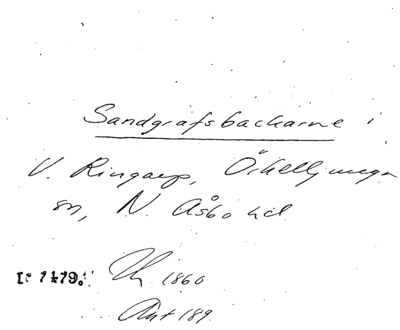 Sandgrafsbackarne i
V. Ringarp, Örkelljunga
sn, N. Åsbo hd.
1860
Ant 189.